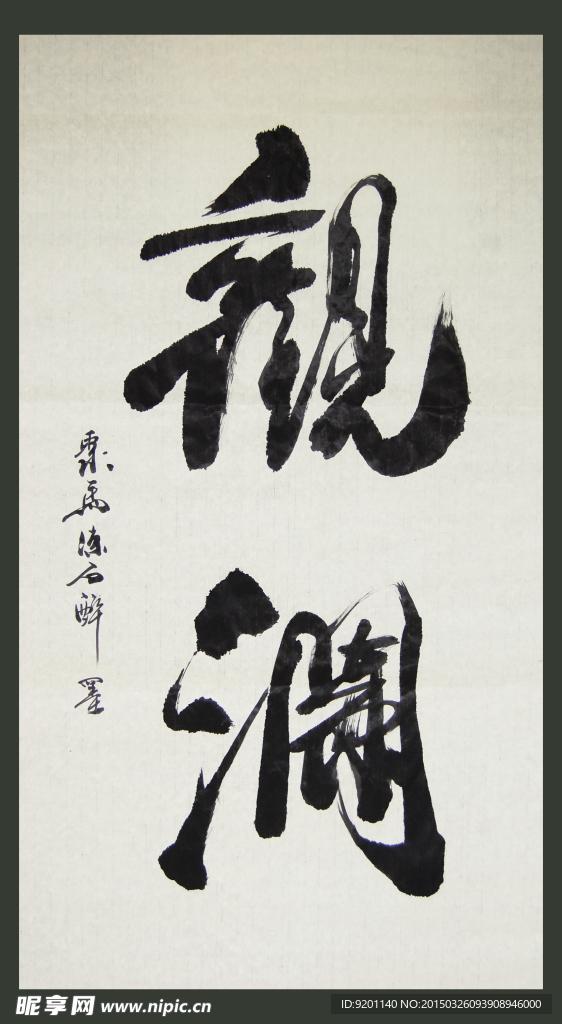 觀
瀾
馬陳石醉墨
昵享网 www.nipic.cn
ID:9201140 NO:20150326093908946000